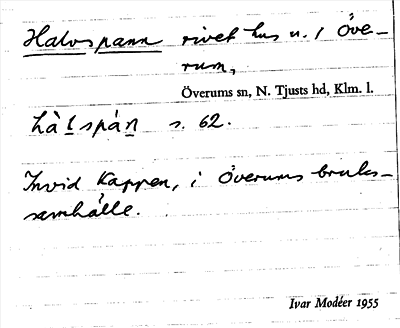 Halvspann rivet hus u. / Öve-
rum,
Överums sn, N. Tjusts hd, Klm. l.
hàlspán s. 62.
Invid Kappen, i Överums bruks-
samhälle.
Ivar Modéer 1955